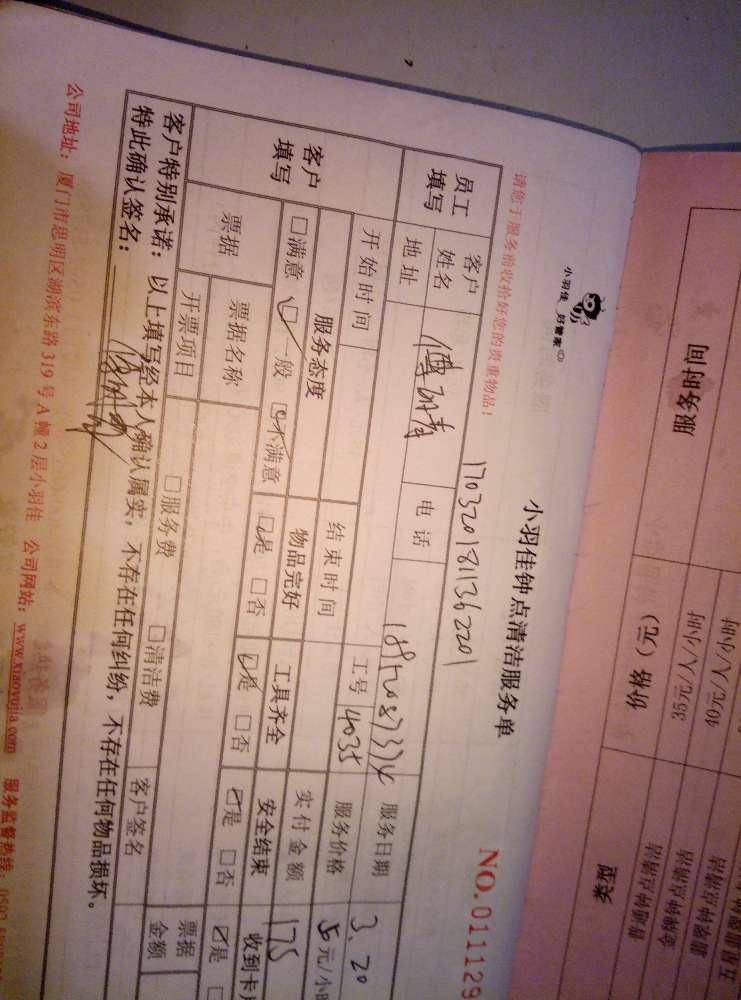 小羽佳 好管家
小羽佳钟点清洁服务单
NO.011129
请您于服务前收拾好您的贵重物品！
1703201811362201
员工填写
客户姓名
电话
服务日期 3.20
地址
工号 4035
服务价格
元/小时
客户填写
开始时间
结束时间
实付金额 175
服务态度
物品完好
工具齐全
安全结束
收到卡
□满意 □一般 □不满意
□是 □否
□是 □否
□是 □否
□是
票据
票据名称
票据金额
开票项目
□服务费
□清洁费
客户签名
客户特别承诺：以上填写经本人确认属实，不存在任何纠纷，不存在任何物品损坏。
特此确认签名：
公司地址：厦门市思明区湖滨东路319号A幢2层小羽佳 公司网站：www.xiaoyujia.com 服务监督热线：0592
服务时间
价格（元）
类型
35元/人/小时
40元/人/小时